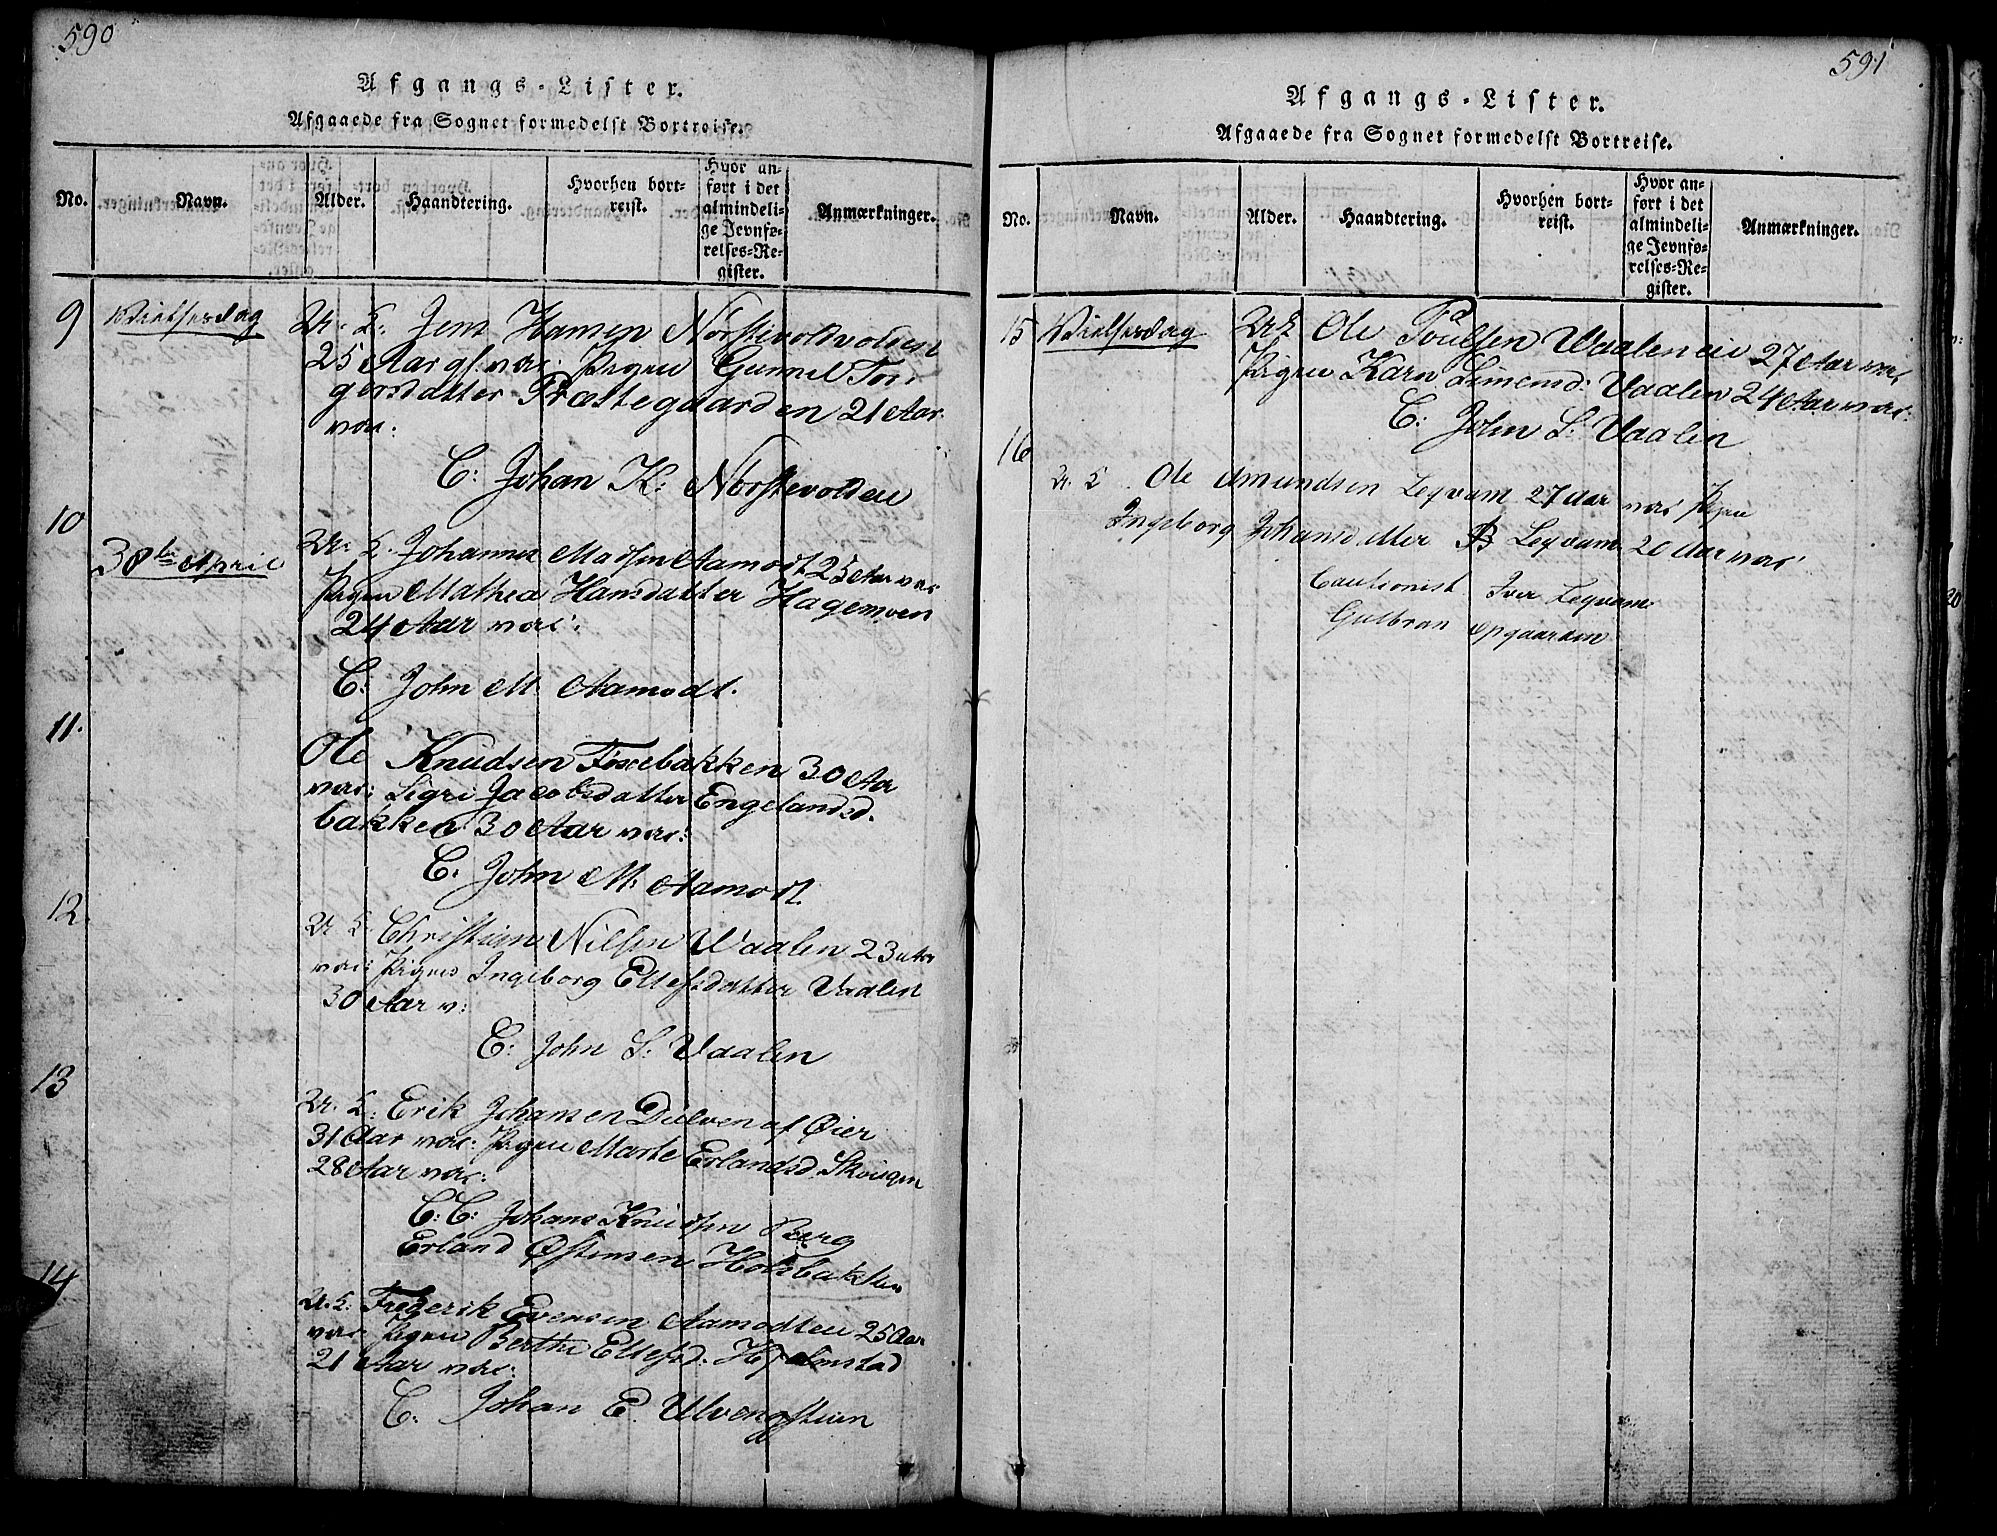 590
Afgangs-Lister.
Afgaaede fra Sognet formedelst Bortreise.
No.
Navn.
Alder.
Haandtering.
Hvorhen bort-
reist.
Hvor an-
ført i det
almindeli-
ge Jevnfø-
relses-Re-
gister.
Anmærkninger.
9
Vielsesdag
U. K. Jens Hansen Nørstevoldvolden
25 Aar gl. vac: Pigen Gunnil Tor-
gersdatter Præstegaarden 21 Aar
vac:
C: Johan K: Nørstevolden
10
30te April
U. K. Johannes Madsen Aamodt 25 Aar vac
Pigen Mathea Hansdatter Hagemoen
24 Aar vac:
C: John M. Aamodt.
11.
Ole Knudsen Fossebakken 30 Aar
vac: Sigri Jacobsdatter Engelandsd.
bakken 30 Aar vac:
C. John M. Aamodt.
12.
U. K. Christian Nilsen Vaalen 23 Aar
vac: Pigen Ingeborg Ellefsdatter Vaalen
30 Aar v:
C: John S: Vaalen
13
U. K. Erik Johansen Dulven af Øier
31 Aar vac: Pigen Marte Erlandsd. Skougen
28 Aar vac:
C: C: Johans Knudsen Berg
Erland Østensen Holsbakken
14
U. K: Frederik Evensen Aamodteie 25 Aar
vac: Pigen Berthe Ellefsd: Hjelmstad
21 Aar vac:
C. Johan E. Ulvengstuen
591
Afgangs-Lister.
Afgaaede fra Sognet formedelst Bortreise.
No.
Navn.
Alder.
Haandtering.
Hvorhen bort-
reist.
Hvor an-
ført i det
almindeli-
ge Jevnfø-
relses-Re-
gister.
Anmærkninger.
15
Vielsesdag
U. K Ole Poulsen Vaalen eie 27 Aar vac
Pigen Karn Simensd: Vaalen 24 Aar vac:
C: John S: Vaalen
16
U. K. Ole Amundsen Legvam 27 Aar vac Pigen
Ingeborg Johansdatter Legvam 20 Aar vac:
Cautionist Iver Legvam
Gulbran Opgaarden